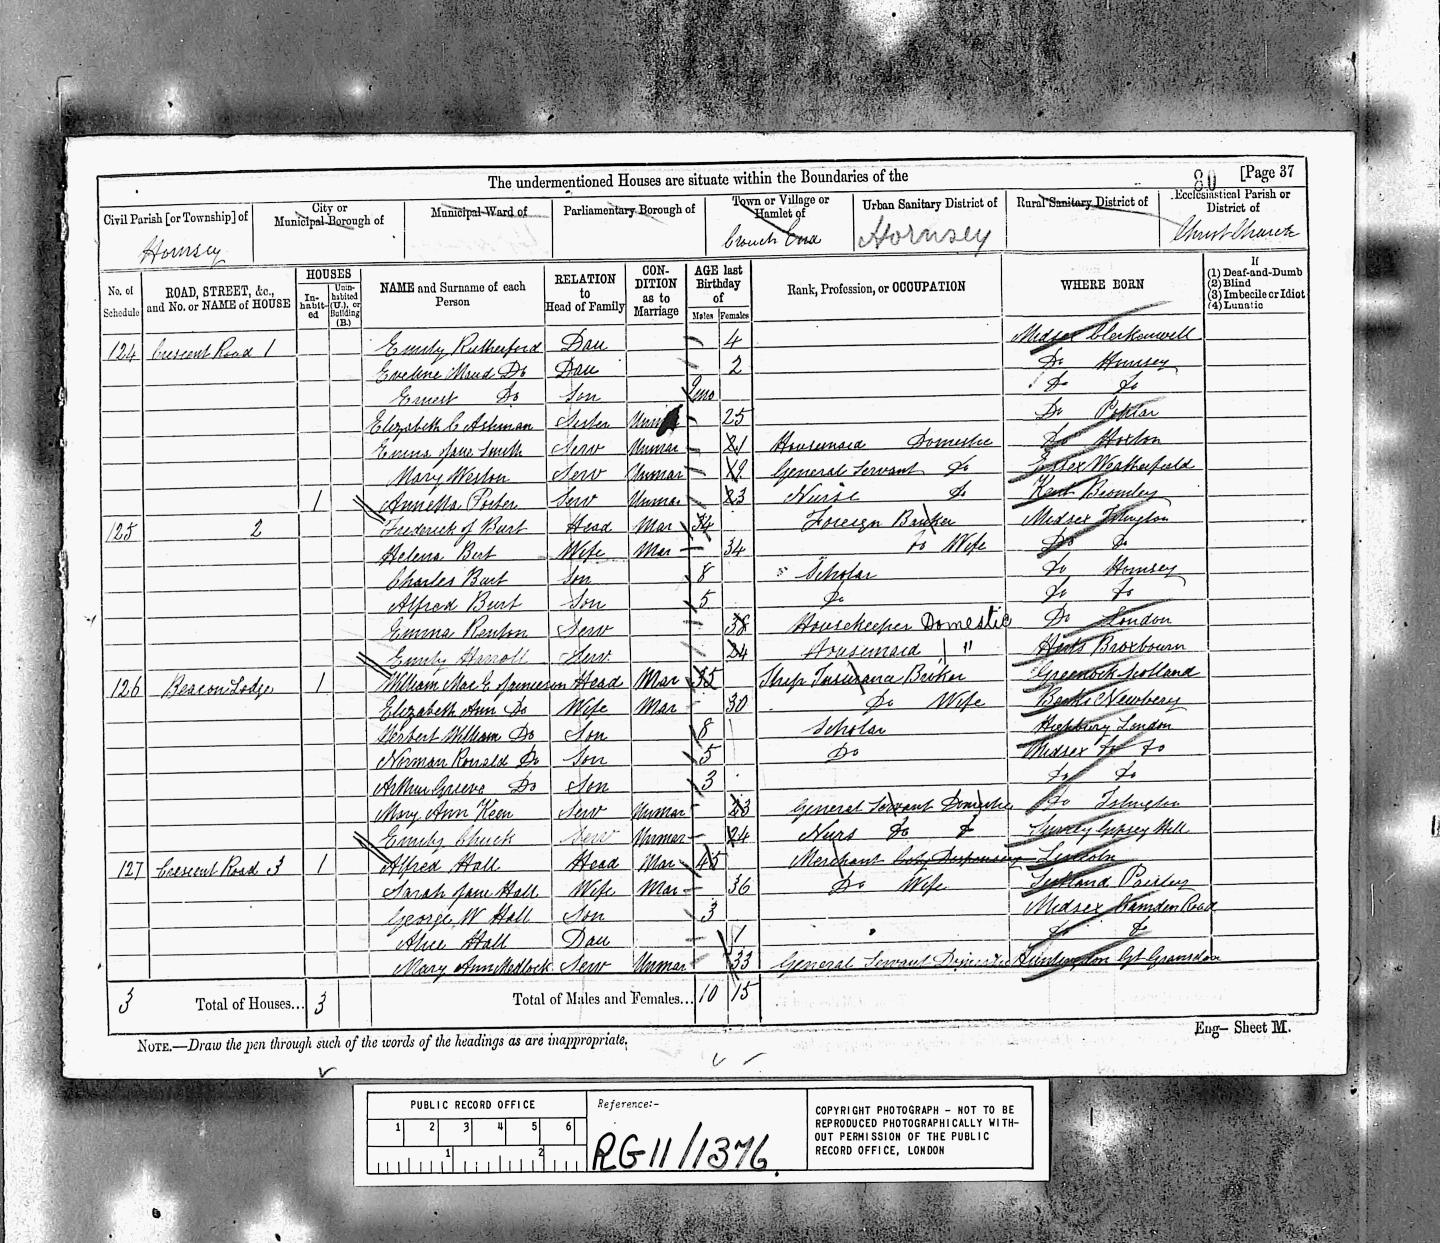 The undermentioned Houses are situate within the Boundaries of the 80 [Page 37
Civil Parish [or Township] of City or Municipal Borough of Municipal Ward of Parliamentary Borough of Town or Village or Hamlet of Urban Sanitary District of Rural Sanitary District of Ecclesiastical Parish or District of
Hornsey Crouch End Hornsey Christ Church
No. of Schedule ROAD, STREET, &c., and No. or NAME of HOUSE HOUSES In-habit-ed Unin-habited (U.), or Building (B.) NAME and Surname of each Person RELATION to Head of Family CON-DITION as to Marriage AGE last Birthday of Males Females Rank, Profession, or OCCUPATION WHERE BORN If (1) Deaf-and-Dumb (2) Blind (3) Imbecile or Idiot (4) Lunatic
124 Crescent Road 1 Emily Rutherford Dau 4 Midsex Clerkenwell
Eveline Maud Do Dau 2 Do Hornsey
Ernest Do Son 2mo Do Do
Elizabeth C Ashman Sister Unmar 25 Do Poplar
Emma Jane Smith Serv Unmar 21 Housemaid Domestic Do Hoxton
Mary Weston Serv Unmar 19 General Servant Do Essex Weatherfield
1 Annetta Porter Serv Unmar 23 Nurse Do Kent Bromley
125 2 Frederick J Burt Head Mar 34 Foreign Banker Midsex Islington
Helena Burt Wife Mar 34 Do Wife Do Do
Charles Burt Son 8 Scholar Do Hornsey
Alfred Burt Son 5 Do Do Do
Emma Renton Serv 38 Housekeeper Domestic Do London
Emily Serv 24 Housemaid " Herts Broxbourn
126 Beacon Lodge 1 William Mac E Jamieson Head Mar 35 Ship Insurance Broker Greenock Scotland
Elizabeth Ann Do Wife Mar 30 Do Wife Berks Newbery
Herbert William Do Son 8 Scholar Highbury London
Norman Ronald Do Son 5 Do Midsex Do Do
Arthur Grieve Do Son 3 Do Do
Mary Ann Keen Serv Unmar 23 General Servant Domestic Do Islington
Emily Chuck Serv Unmar 24 Nurs Do Do Surrey Gipsey Hill
127 Crescent Road 3 1 Alfred Hall Head Mar 45 Merchant Lincoln
Sarah Jane Hall Wife Mar 36 Do Wife Scotland Paisley
George W Hall Son 3 Midsex Camden Road
Alice Hall Dau 1 Do Do
Mary Ann Medlock Serv Unmar 33 General Servant Domestic Huntingdon Gt Gransden
3 Total of Houses... 3 Total of Males and Females... 10 15
Eng- Sheet M.
NOTE.—Draw the pen through such of the words of the headings as are inappropriate.
PUBLIC RECORD OFFICE
1 2 3 4 5 6
1 2
Reference:-
RG11/1376
COPYRIGHT PHOTOGRAPH - NOT TO BE
REPRODUCED PHOTOGRAPHICALLY WITH-
OUT PERMISSION OF THE PUBLIC
RECORD OFFICE, LONDON